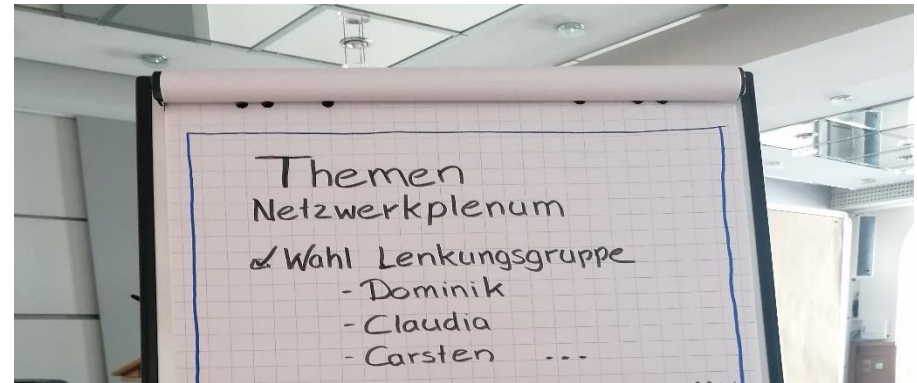 Themen
Netzwerkplenum
Wahl Lenkungsgruppe
- Dominik
- Claudia
- Carsten ...